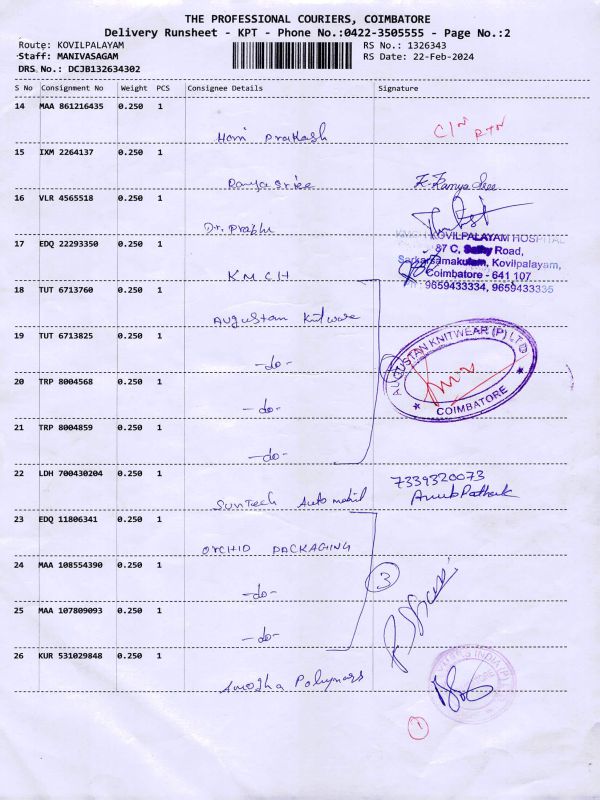 THE PROFESSIONAL COURIERS, COIMBATORE
Delivery Runsheet - KPT - Phone No.:0422-3505555 - Page No.:2
Route: KOVILPALAYAM RS No.: 1326343
Staff: MANIVASAGAM RS Date: 22-Feb-2024
DRS No.: DCJB132634302
S No Consignment No Weight PCS Consignee Details Signature
14 MAA 861216435 0.250 1
Hari Prakash C/N RTN
15 IXM 2264137 0.250 1
Ramya Sree K. Ramya Sree
16 VLR 4565518 0.250 1
Dr. Prabhu
17 EDQ 22293350 0.250 1
KOVILPALAYAM HOSPITAL
87 C, Sathy Road,
Sarkarsamakulam, Kovilpalayam,
Coimbatore - 641 107
9659433334, 9659433335
K.M.C.H
18 TUT 6713760 0.250 1
Augustan Knitware
19 TUT 6713825 0.250 1
-do-
AUGUSTAN KNITWEAR (P) LTD
COIMBATORE
20 TRP 8004568 0.250 1
-do-
21 TRP 8004859 0.250 1
-do-
22 LDH 700430204 0.250 1
Suntech Automobil 7339320073
23 EDQ 11806341 0.250 1
ORCHID PACKAGING
24 MAA 108554390 0.250 1
-do- 3
25 MAA 107809093 0.250 1
-do-
26 KUR 531029848 0.250 1
Polymers
1